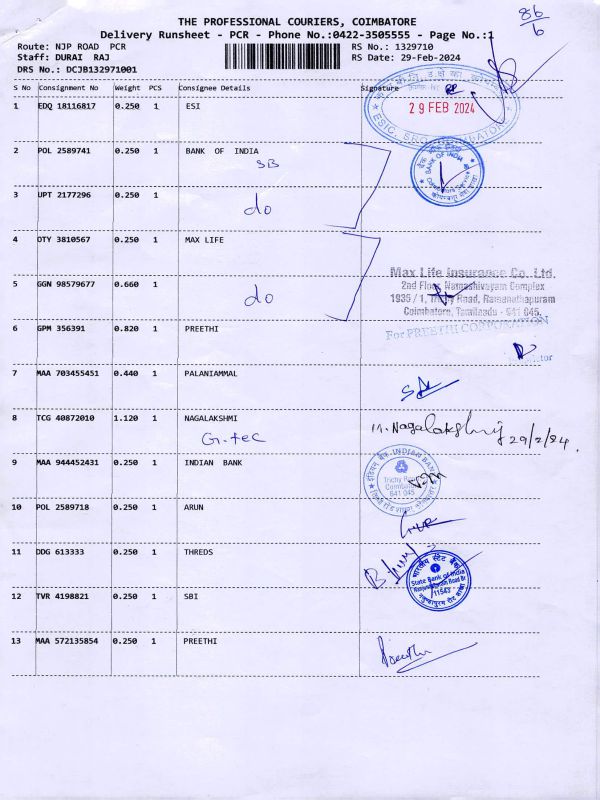 86/6
THE PROFESSIONAL COURIERS, COIMBATORE
Delivery Runsheet - PCR - Phone No.:0422-3505555 - Page No.:1
Route: NJP ROAD PCR RS No.: 1329710
Staff: DURAI RAJ RS Date: 29-Feb-2024
DRS No.: DCJB132971001
S No Consignment No Weight PCS Consignee Details Signature
1 EDQ 18116817 0.250 1 ESI
29 FEB 2024
2 POL 2589741 0.250 1 BANK OF INDIA
SB
BANK OF INDIA
3 UPT 2177296 0.250 1
do
4 OTY 3810567 0.250 1 MAX LIFE
Max Life Insurance Co. Ltd.
5 GGN 98579677 0.660 1 2nd Floor, Ramashivayam Complex
do 1935 / 1, Trichy Road, Ramanathapuram
Coimbatore, Tamilnadu - 641 045.
6 GPM 356391 0.820 1 PREETHI For PREETHI CORPORATION
7 MAA 703455451 0.440 1 PALANIAMMAL
8 TCG 40872010 1.120 1 NAGALAKSHMI
G.tec M. Nagalakshmi 29/2/24.
9 MAA 944452431 0.250 1 INDIAN BANK INDIAN BANK
Trichy Road
Coimbatore
641 045
10 POL 2589718 0.250 1 ARUN
11 DDG 613333 0.250 1 THREDS
भारतीय स्टेट बैंक
State Bank of India
11543
12 TVR 4198821 0.250 1 SBI
13 MAA 572135854 0.250 1 PREETHI Preethi